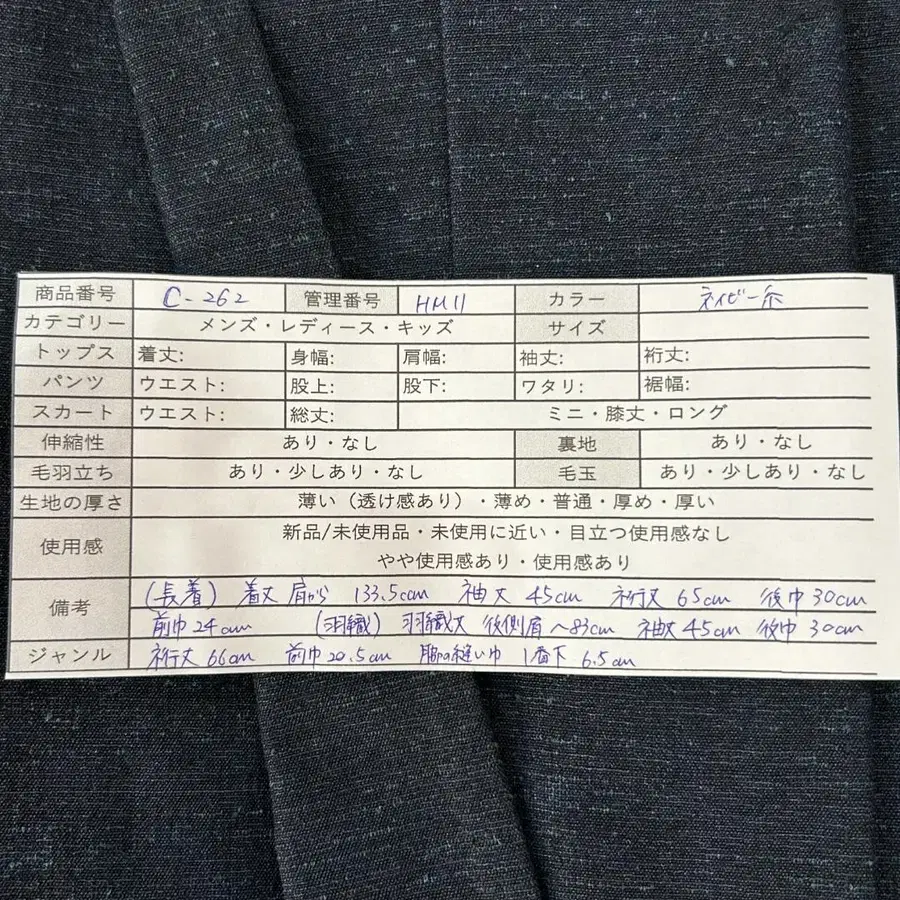 商品番号 C-262 管理番号 HM11 カラー ネイビー系
カテゴリー メンズ・レディース・キッズ サイズ
トップス 着丈: 身幅: 肩幅: 袖丈: 裄丈:
パンツ ウエスト: 股上: 股下: ワタリ: 裾幅:
スカート ウエスト: 総丈: ミニ・膝丈・ロング
伸縮性 あり・なし 裏地 あり・なし
毛羽立ち あり・少しあり・なし 毛玉 あり・少しあり・なし
生地の厚さ 薄い（透け感あり）・薄め・普通・厚め・厚い
使用感 新品/未使用品・未使用に近い・目立つ使用感なし
やや使用感あり・使用感あり
備考 (長着) 着丈 肩から 133.5cm 袖丈 45cm 裄丈 65cm 後巾 30cm
前巾 24cm (羽織) 羽織丈 後側肩〜83cm 袖丈 45cm 後巾 30cm
ジャンル 裄丈 66cm 前巾 20.5cm 脇の縫い巾 1番下 6.5cm